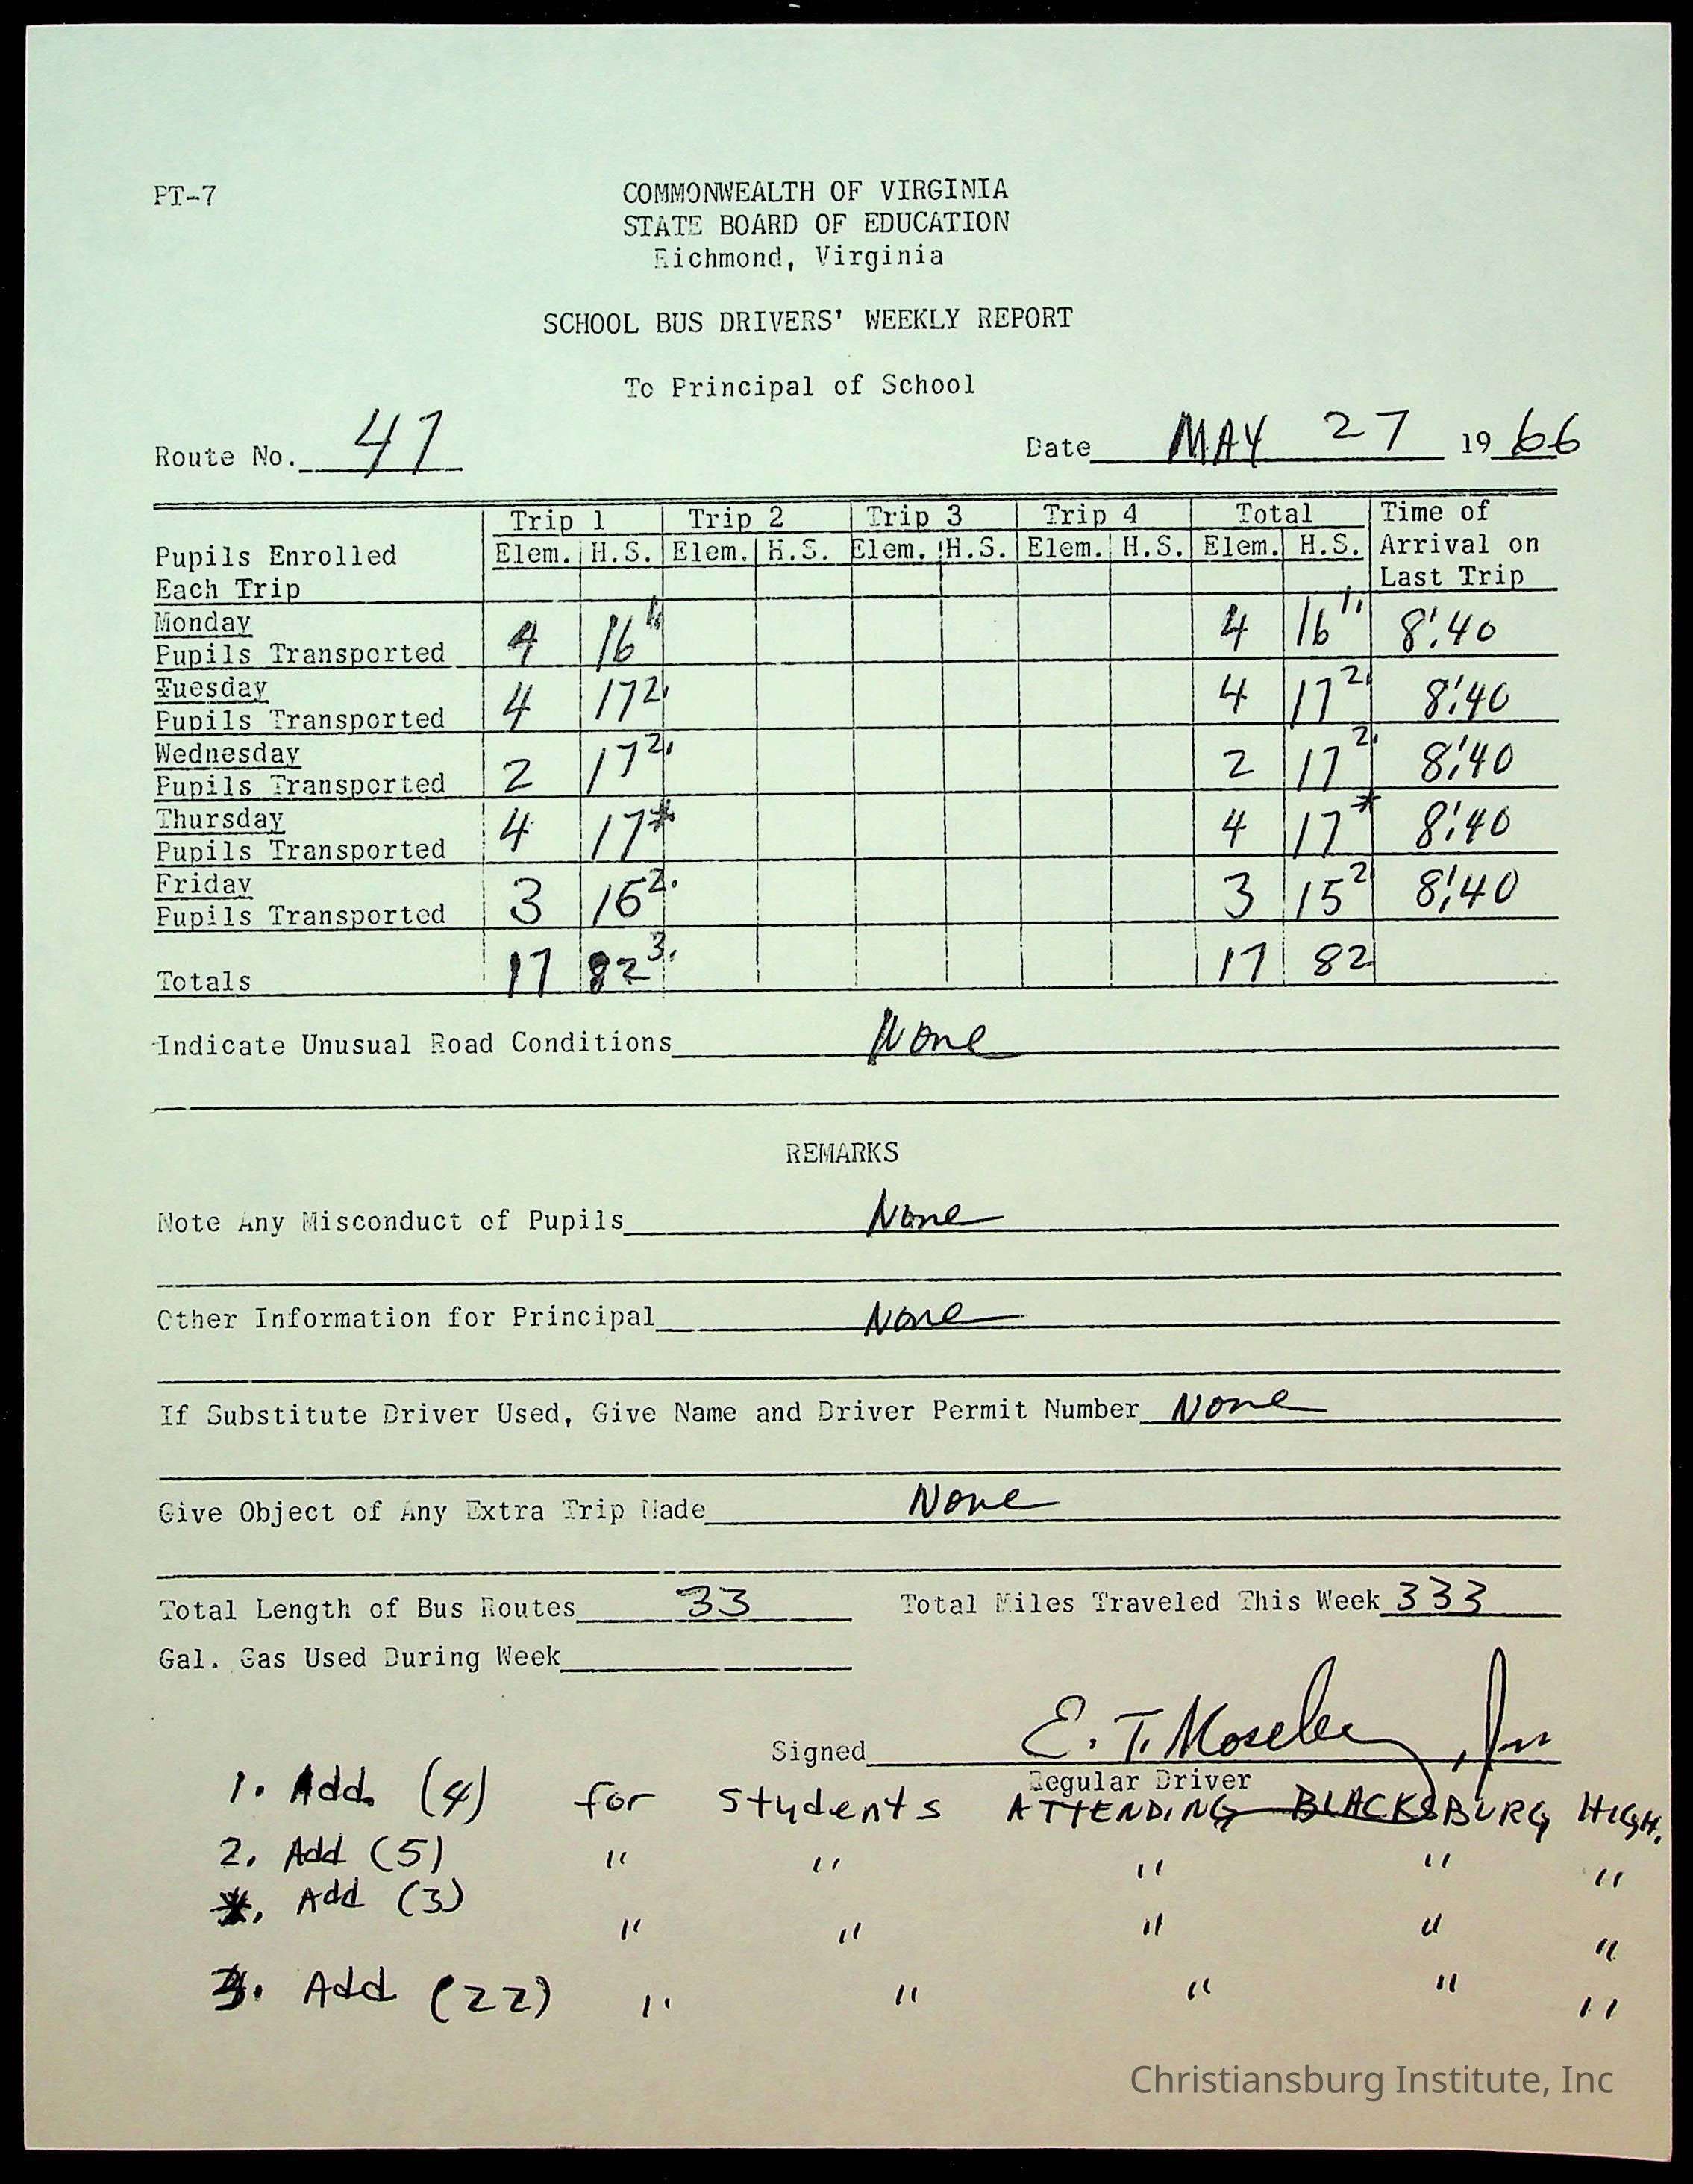 PT-7
COMMONWEALTH OF VIRGINIA
STATE BOARD OF EDUCATION
Richmond, Virginia
SCHOOL BUS DRIVERS' WEEKLY REPORT
To Principal of School
Route No. 47 Date MAY 27 1966
Trip 1 Trip 2 Trip 3 Trip 4 Total Time of
Pupils Enrolled Elem. H.S. Elem. H.S. Elem. H.S. Elem. H.S. Elem. H.S. Arrival on
Each Trip Last Trip
Monday
Pupils Transported 4 16 1. 4 16 1. 8:40
Tuesday
Pupils Transported 4 17 2. 4 17 2. 8:40
Wednesday
Pupils Transported 2 17 2. 2 17 2. 8:40
Thursday
Pupils Transported 4 17 * 4 17 * 8:40
Friday
Pupils Transported 3 15 2. 3 15 2 8:40
Totals 17 82 3. 17 82
Indicate Unusual Road Conditions None
REMARKS
Note Any Misconduct of Pupils None
Other Information for Principal None
If Substitute Driver Used, Give Name and Driver Permit Number None
Give Object of Any Extra Trip Made None
Total Length of Bus Routes 33 Total Miles Traveled This Week 333
Gal. Gas Used During Week
Signed E. T. Moseley, Jr
Regular Driver
1. Add (4) for students ATTENDING BLACKSBURG HIGH.
2. Add (5) " " " " "
*. Add (3) " " " " "
3. Add (22) " " " " "
Christiansburg Institute, Inc